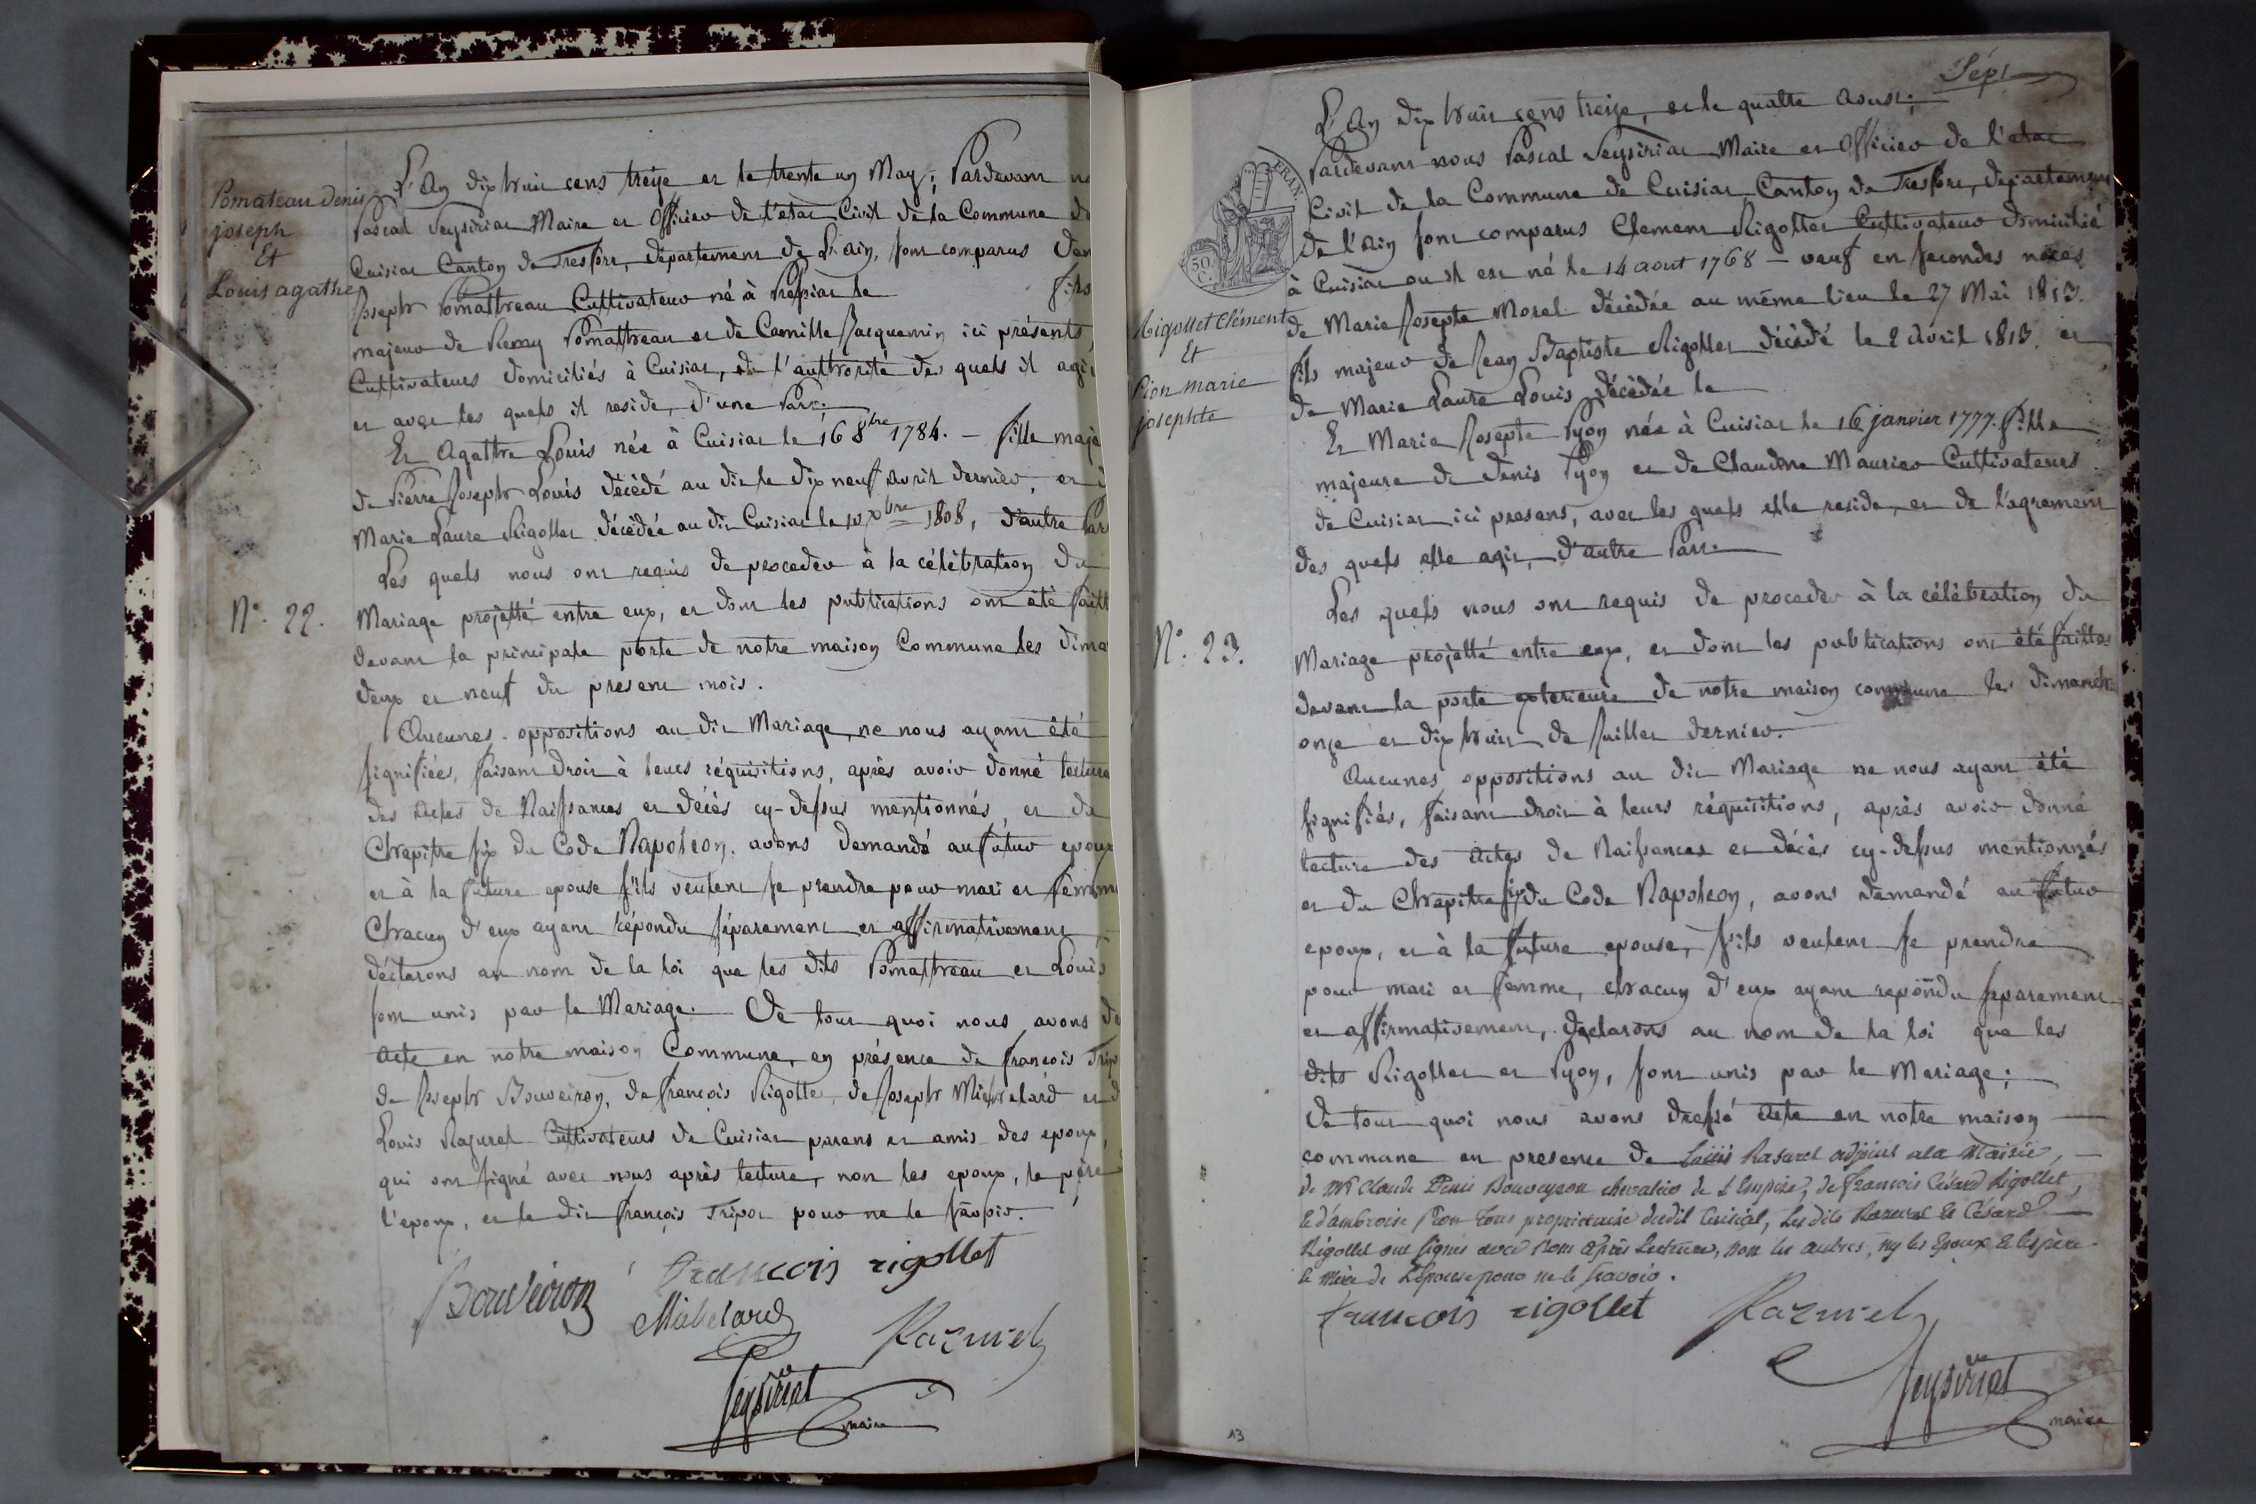 Pomateau Denis
joseph
Et
Louis agathe
N.° 22.
L'An dix huit cens treize et le trente un May; Pardevant
Pascal Seyssiriat Maire et Officier de l'etat Civil de la Commune de
Cuisiat Canton de Tresfort, département de L'ain, sont comparus
Joseph Pomathreau Cultivateur né à Pressiat le fils
majeur de Remy Pomathreau et de Camille Jacquemin ici présents
Cultivateurs domiciliés à Cuisiat, de l'authorité des quels il agit
et avec les quels il reside, d'une Part.
Et Agathe Louis née à Cuisiat le 16 8bre 1784. - fille
de Pierre Joseph Louis décédé au dit le dix neuf avril dernier, et
Marie Laure Rigollet décédée au dit Cuisiat le bre 1808, d'autre
Les quels nous ont requis de proceder à la célébration du
Mariage projetté entre eux, et dont les publications ont été
devant la principale porte de notre maison Commune les
deux et neuf du present mois.
Aucunes oppositions au dit Mariage ne nous ayant été
signifiées, faisant droit à leurs réquisitions, après avoir donné lecture
des Actes de Naissances et décès cy-dessus mentionnés, et du
Chapitre six du Code Napoleon, avons demandé au futur epoux
et à la future epouse s'ils veulent se prendre pour mari et femme
Chacun d'eux ayant répondu séparement et affirmativement
déclarons au nom de la loi que les dits Pomathreau et Louis
sont unis par le Mariage. De tout quoi nous avons
Acte en notre maison Commune, en présence de françois
de Joseph Bouveiron, de françois Rigollet, de Joseph Michelard et
Louis Razurel Cultivateurs de Cuisiat parens et amis des epoux,
qui ont signé avec nous après lecture, non les epoux, le père
l'epoux, et le dit françois Tripot pour ne le savoir.
Bouveiron
francois rigollet
Michelard
Razurel
Seyssiriat
maire
Sépt
FRAN.
50
C.
Rigollet Clément
Et
Pion marie
josephte
N.° 23.
L'An dix huit cens treize, et le quatre Aoust;
Pardevant nous Pascal Seyssiriat Maire et Officier de l'etat
Civil de la Commune de Cuisiat Canton de Tresfort, departement
de l'ain sont comparus Clement Rigollet Cultivateur domicilié
à Cuisiat ou il est né le 14 aout 1768 - veuf en secondes noces
de Marie Josepte Morel décédée au même lieu le 27 Mai 1813.
fils majeur de Jean Baptiste Rigollet décédé le 2 Avril 1813. et
de Marie Laure Louis décédée le
Et Marie Josepte Pyon née à Cuisiat le 16 janvier 1777. fille
majeure de denis Pyon et de Claudine Maurier Cultivateurs
de Cuisiat ici presens, avec les quels elle reside, et de l'agrement
des quels elle agit, d'autre Part.
Les quels nous ont requis de proceder à la célébration du
Mariage projetté entre eux, et dont les publications ont été faittes
devant la porte exterieure de notre maison commune les dimanche
onze et dix huit de Juillet dernier.
Aucunes oppositions au dit Mariage ne nous ayant été
signifiés, faisant droit à leurs réquisitions, après avoir donné
lecture des Actes de Naissances et décès cy-dessus mentionnés
et du Chapitre six du Code Napoleon, avons demandé au futur
epoux, et à la future epouse, s'ils veulent se prendre
pour mari et femme, chacun d'eux ayant repondu separement
et affirmativement, declarons au nom de la loi que les
dits Rigollet et Pyon, sont unis par le Mariage;
De tout quoi nous avons dressé Acte en notre maison
commune en presence de Louis Rasurel adjoint a la Mairie,
de Mr Claude Denis Bouveyron chevalier de l'Empire, de francois Césard Rigollet,
et d'ambroise Pion tous proprietaire dudit Cuisiat, Les dits Razurel et Césard
Rigollet ont signés avec Nous après Lecture, non les autres, ny les Epoux et les père
et mère de l'Epouse pour ne le scavoir.
francois rigollet
Razurel
Seyssiriat
maire
13